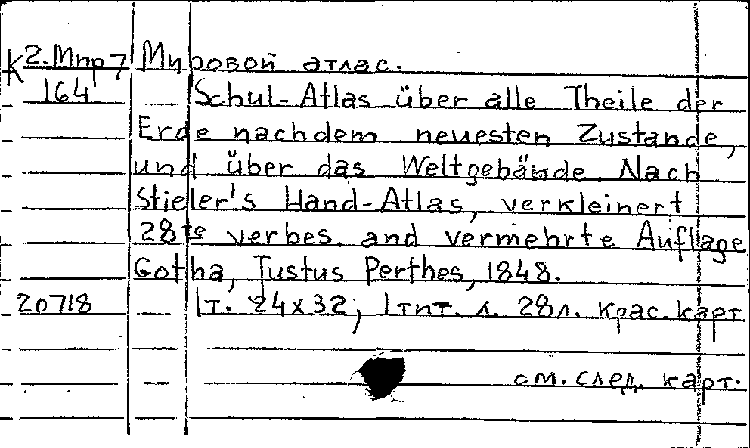 К 2.Мир 7 Мировой атлас.
164 Schul-Atlas über alle Theile der
Erde nachdem neuesten Zustande,
und über das Weltgebäude Nach
Stieler's Hand-Atlas, verkleinert
28te verbes. and vermehrte Auflage
Gotha, Justus Perthes, 1848.
20718 1т. 24x32; 1тит. л. 28л. крас. карт
см. след. карт.